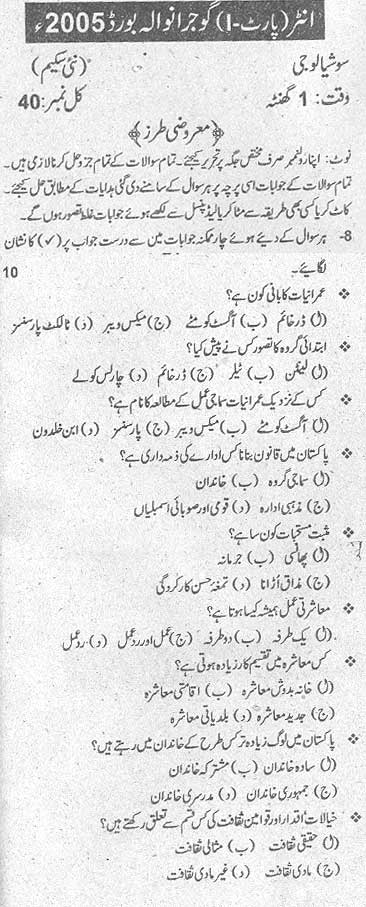 انٹر (پارٹ-I) گوجرانوالہ بورڈ 2005ء
سوشیالوجی (نئی سکیم)
وقت: 1 گھنٹہ کل نمبر: 40
﴿معروضی طرز﴾
نوٹ: اپنا رولنمبر صرف مختص جگہ پر تحریر کیجئے۔ تمام سوالات کے تمام جزو حل کرنا لازمی ہیں۔
تمام سوالات کے جوابات اسی پرچہ پر ہر سوال کے سامنے دی گئی ہدایات کے مطابق حل کیجئے۔
کاٹ کر یا کسی بھی طریقہ سے مٹا کر یا لیڈ پنسل سے لکھے ہوئے جوابات غلط تصور ہوں گے۔
8- ہر سوال کے دیئے ہوئے چار ممکنہ جوابات میں سے درست جواب پر (✓) کا نشان
لگائیے۔ 10
❖ عمرانیات کا بانی کون ہے؟
(ا) ڈرخائم (ب) آگسٹ کومٹے (ج) میکس ویبر (د) ٹالکٹ پارسنز
❖ ابتدائی گروہ کا تصور کس نے پیش کیا؟
(ا) لینٹن (ب) ٹیلر (ج) ڈرخائم (د) چارلس کولے
❖ کس کے نزدیک عمرانیات سماجی عمل کے مطالعہ کا نام ہے؟
(ا) آگسٹ کومٹے (ب) میکس ویبر (ج) پارسنز (د) ابن خلدون
❖ پاکستان میں قانون بنانا کس ادارے کی ذمہ داری ہے؟
(ا) سماجی گروہ (ب) خاندان
(ج) مذہبی ادارہ (د) قومی اور صوبائی اسمبلیاں
❖ مثبت مستحبات کون سا ہے؟
(ا) پھانسی (ب) جرمانہ
(ج) مذاق اُڑانا (د) تمغہ حسن کارکردگی
❖ معاشرتی عمل ہمیشہ کیسا ہوتا ہے؟
(ا) یک طرفہ (ب) دو طرفہ (ج) عمل اور ردعمل (د) ردعمل
❖ کس معاشرہ میں تقسیم کار زیادہ ہوتی ہے؟
(ا) خانہ بدوش معاشرہ (ب) اقامتی معاشرہ
(ج) جدید معاشرہ (د) بلدیاتی معاشرہ
❖ پاکستان میں لوگ زیادہ تر کس طرح کے خاندان میں رہتے ہیں؟
(ا) سادہ خاندان (ب) مشترکہ خاندان
(ج) جمہوری خاندان (د) مدرسری خاندان
❖ خیالات اقدار اور قوانین ثقافت کی کس قسم سے تعلق رکھتے ہیں؟
(ا) حقیقی ثقافت (ب) مثالی ثقافت
(ج) مادی ثقافت (د) غیر مادی ثقافت